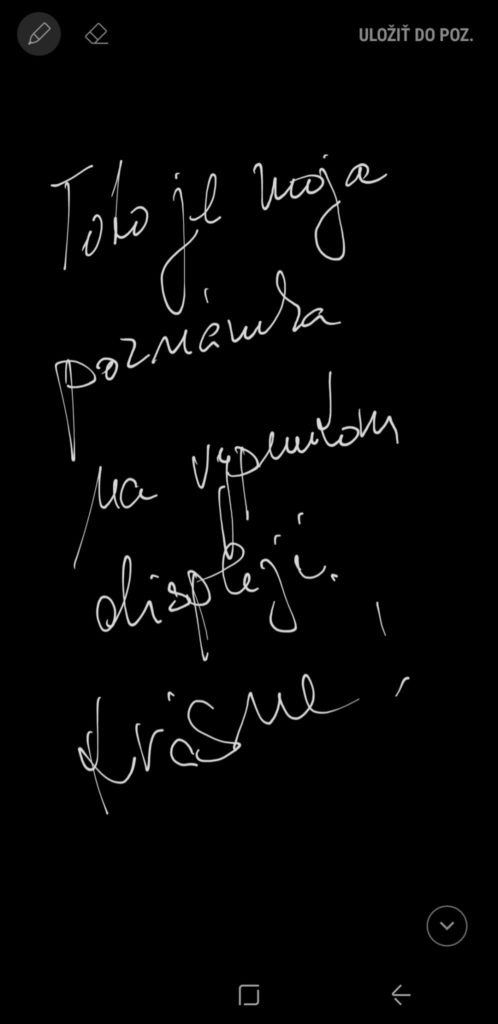 ULOŽIŤ DO POZ.
Toto je moja
poznámka
na vypnutom
displeji.
Krásne!